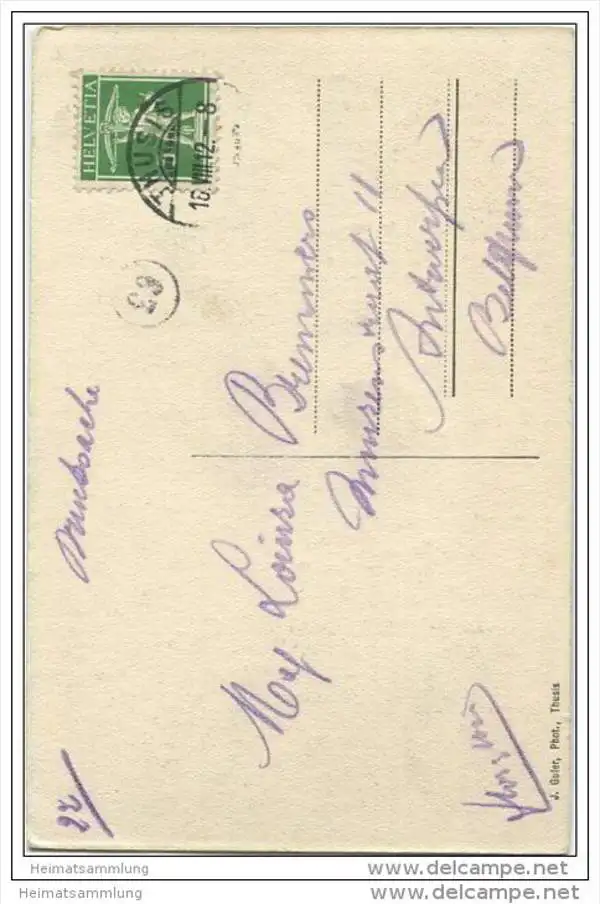 HELVETIA
THUSIS
16.VIII.12. 8
63
Drucksache
Louisa Bremmers
11
Antwerpen
Belgium
27
J. Guler, Phot., Thusis
Heimatsammlung
www.delcampe.net
Heimatsammlung
www.delcampe.net